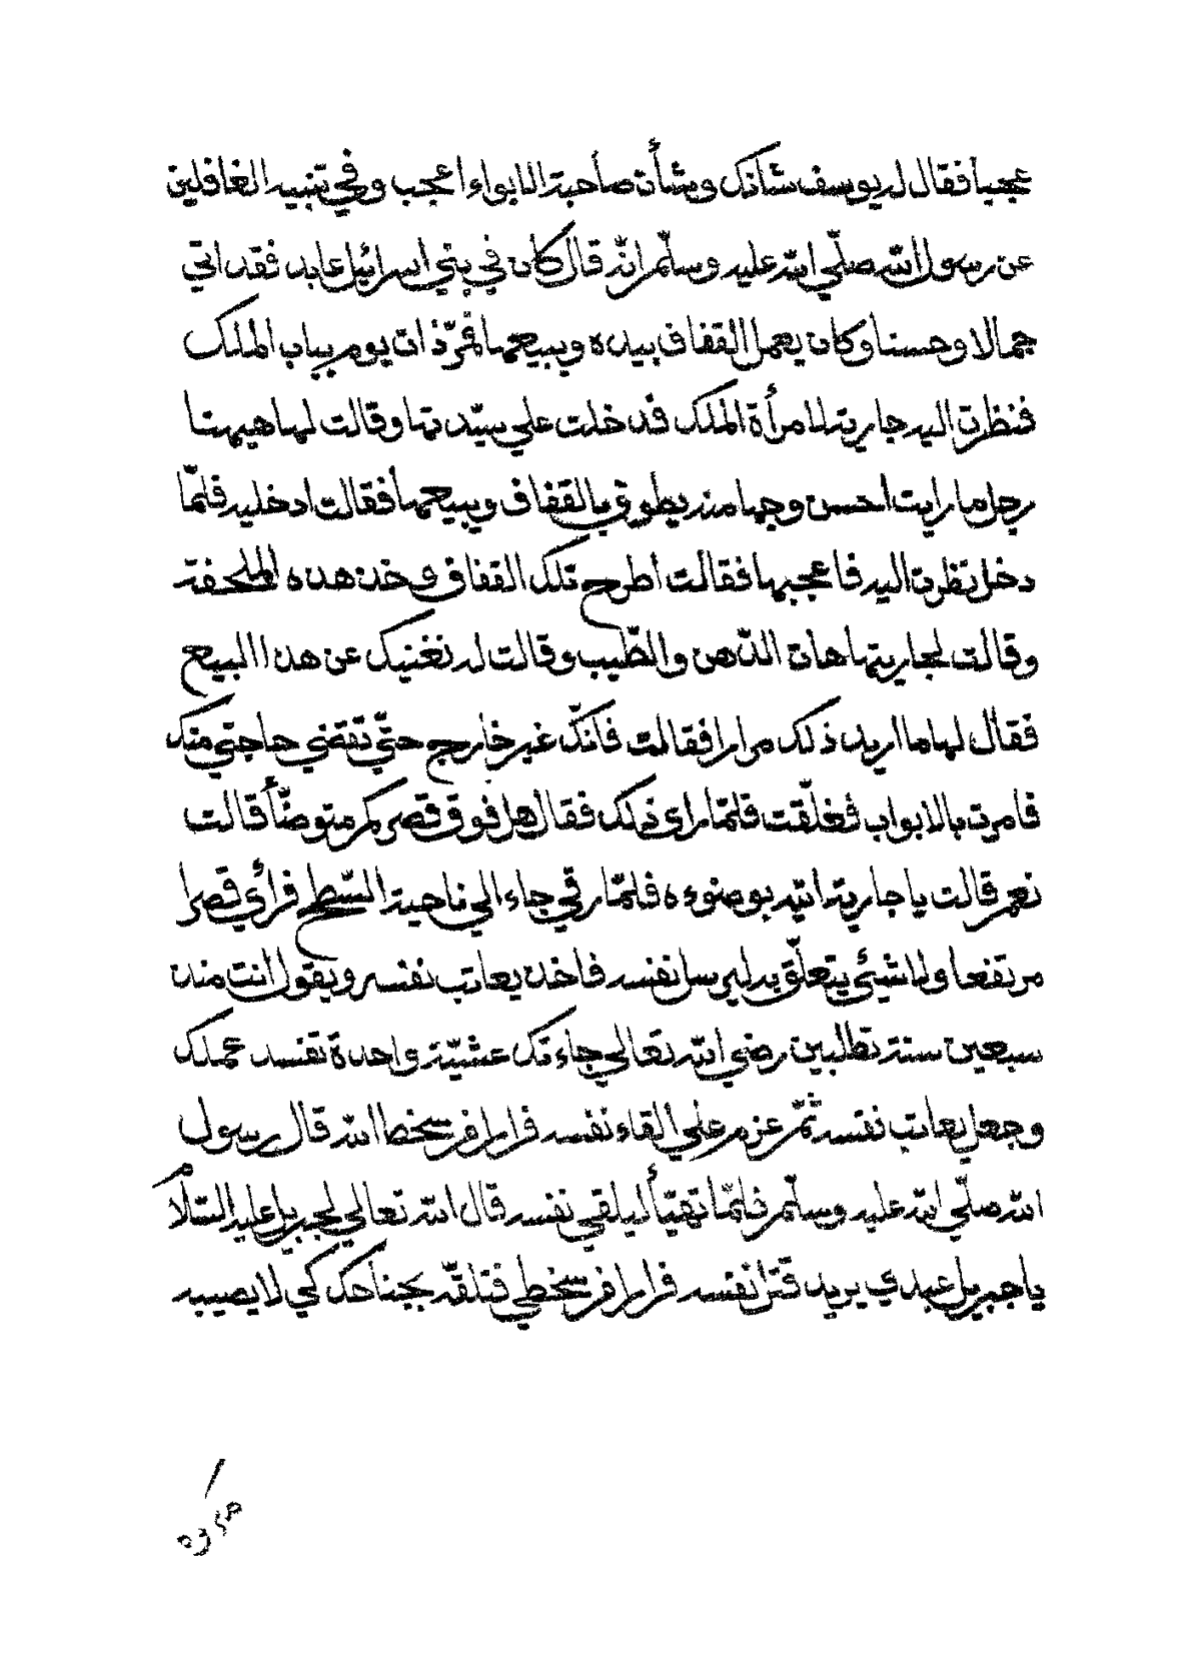 عجبا فقال له يوسف شانك وشأن صاحبة الابواء اعجب وفي تنبيه الغافلين
عن رسول الله صلّي الله عليه وسلّم انّه قال كان في بني اسرائيل عابد فقد اتي
جمالا وحسنا وكان يعمل القفاف بيده ويبيعها فمرّ ذات يوم بباب الملك
فنظرت اليه جارية لامرأة الملك فدخلت علي سيّدتها وقالت لها هيهنا
رجل ما رايت احسن وجها منه يطوف بالقفاف ويبيعها فقالت ادخليه فلمّا
دخل نظرت اليه فاعجبها فقالت أطرح تلك القفاف وخذ هذه الملحفة
وقالت لجاريتها هات الدّهن والطّيب وقالت له نغنيك عن هذا البيع
فقال لها ما اريد ذلك مرارا فقالت فانكّ غير خارج حتّي تقضي حاجتي منك
فامرت بالابواب فغلّقت فلمّا رای ذلك فقال هل فوق قصركم متوضّأ قالت
نعم قالت يا جارية اتيه بوضوءه فلمّا رقي جاء الي ناحية السّطح فرأي قصرا
مرتفعا ولا شيئ يتعلّق به ليرسل نفسه فاخذ يعاتب نفسه ويقول انت منذ
سبعين سنة تطلبين رضي الله تعالي جاءتك عشيّة واحدة تفسد عملك
وجعل يعاتب نفسه ثمّ عزم علي القاء نفسه فرارا من سخط الله قال رسول
الله صلّي الله عليه وسلّم فلمّا تهيّأ ليلقي نفسه قال الله تعالي لجبريل عليه السّلام
يا جبريل عبدي يريد قتل نفسه فرارا من سخطي فتلقّه بجناحك كي لا يصيبه